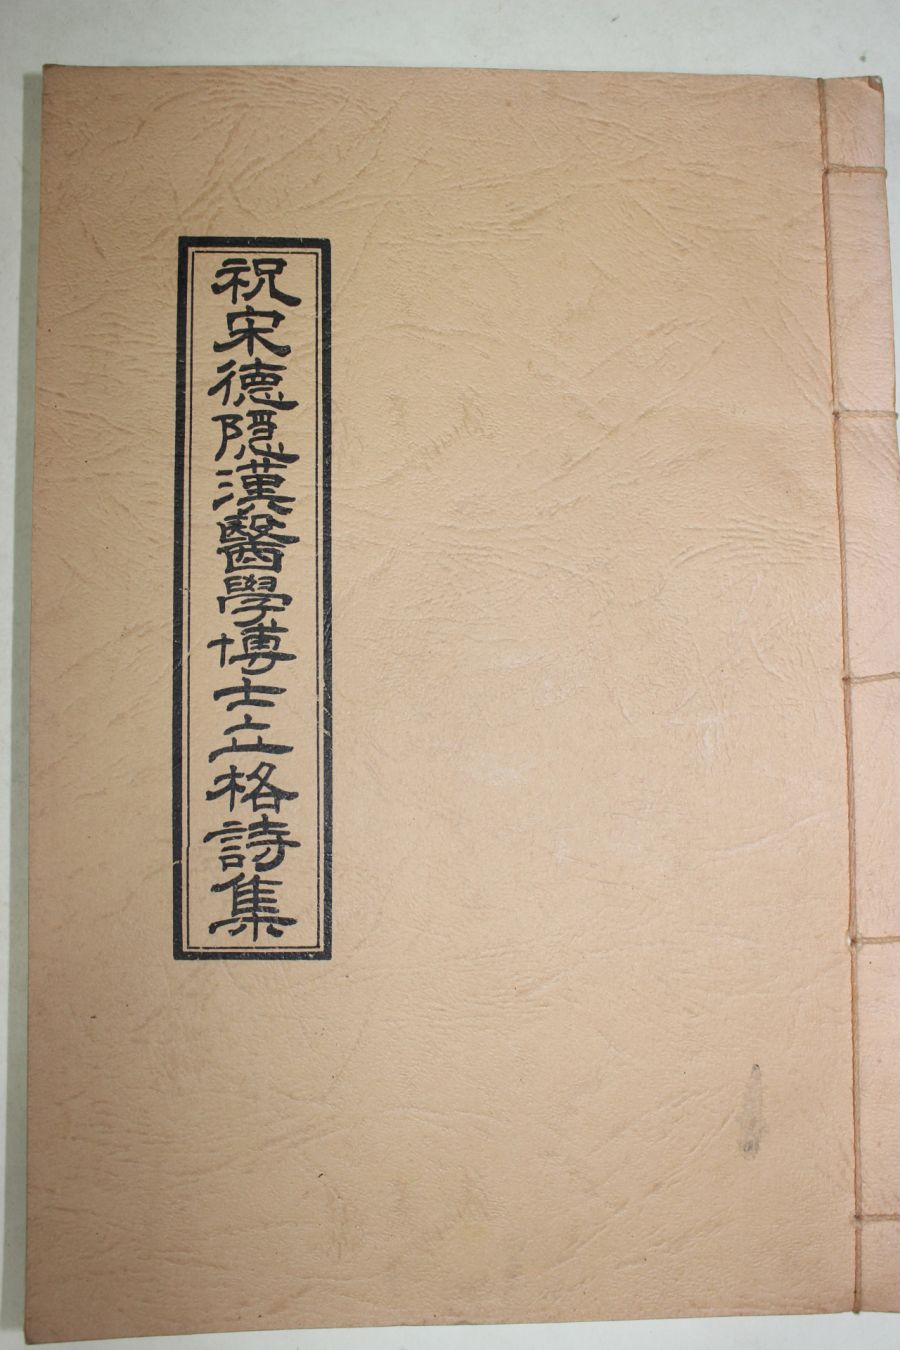 祝宋德隱漢醫學博士立格詩集